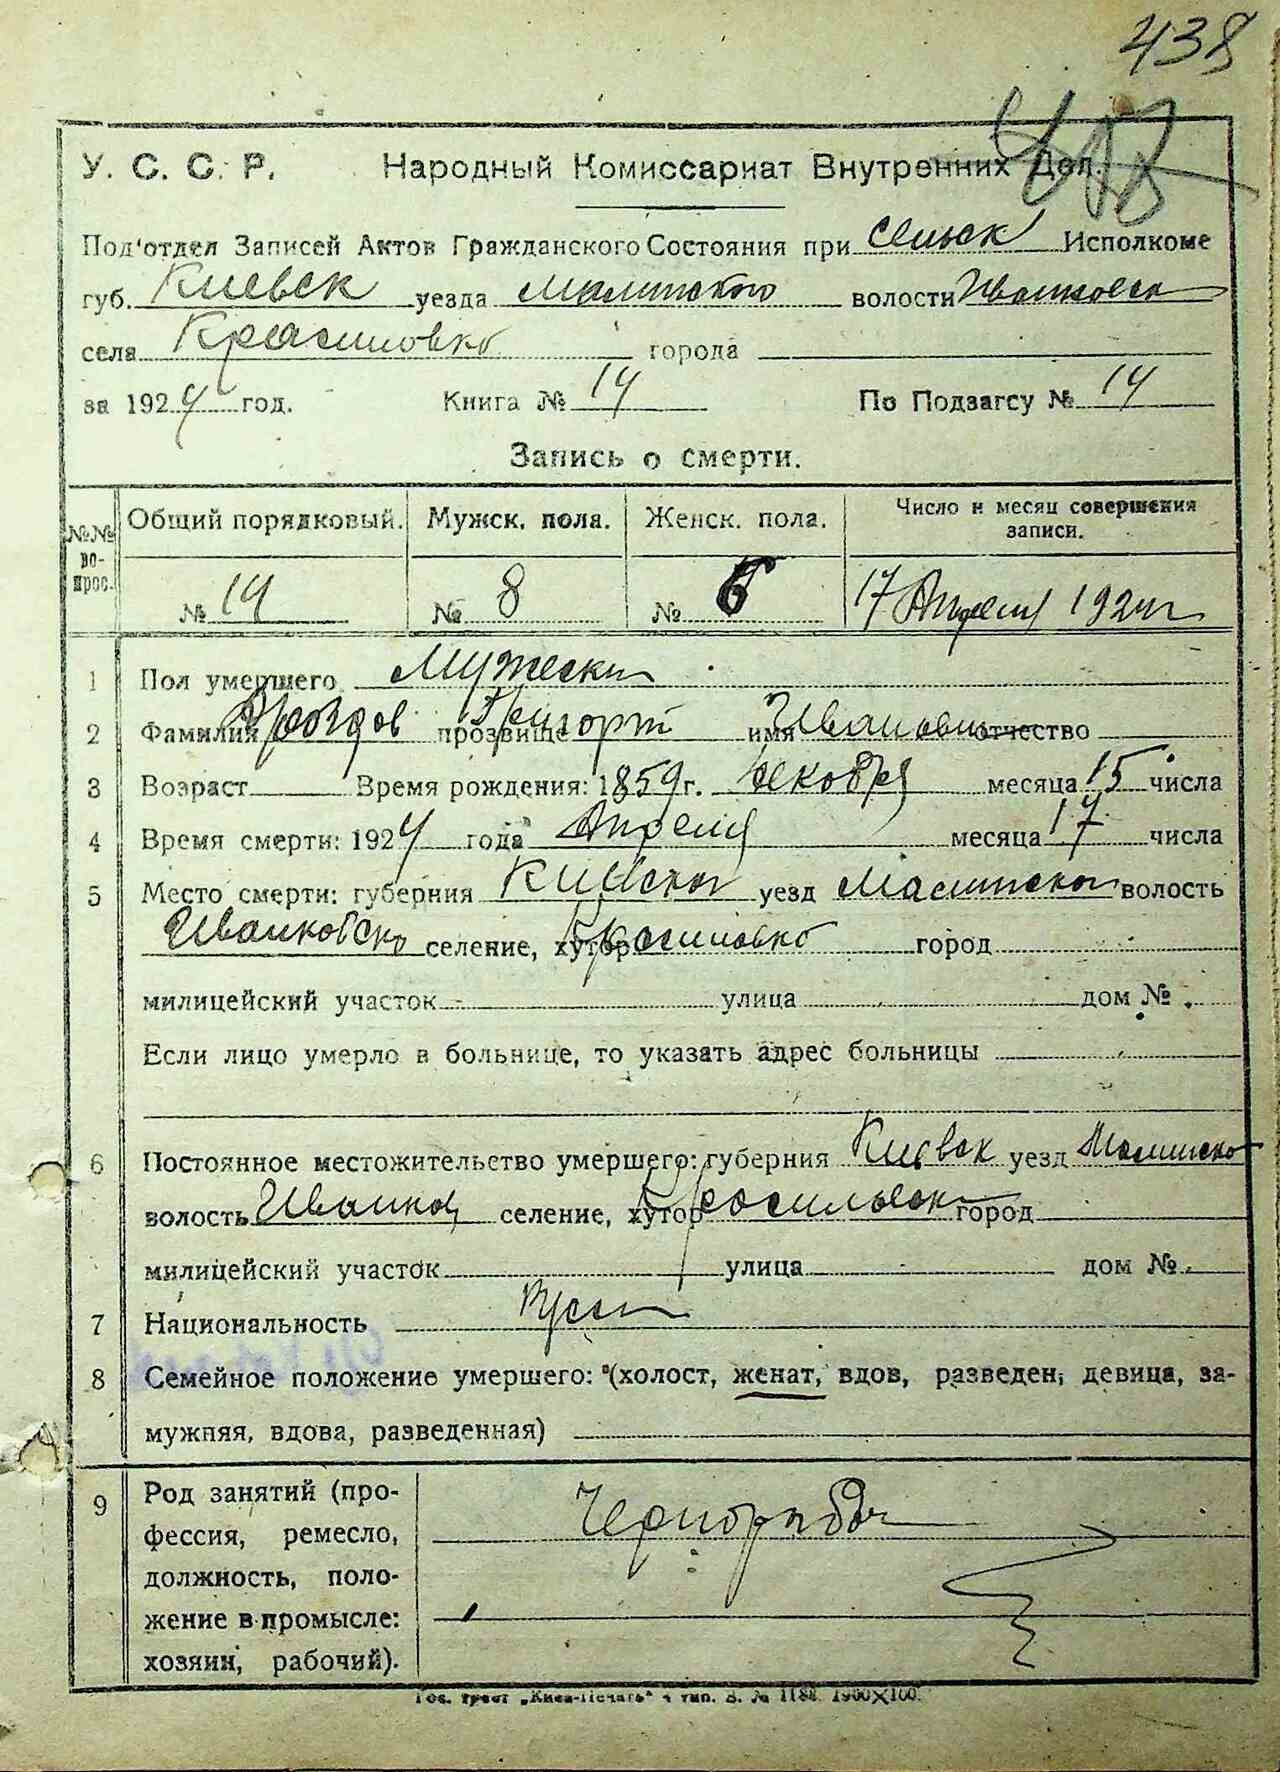 438
У. С. С. Р. Народный Комиссариат Внутренних Дел.
Под'отдел Записей Актов Гражданского Состояния при сельск Исполкоме
губ. Киевск уезда Малинского волости Иванковск
села Красиловка города
за 1924 год. Книга № 14 По Подзагсу № 14
Запись о смерти.
№№ во-прос. Общий порядковый. Мужск. пола. Женск. пола. Число и месяц совершения записи.
№ 14 № 8 № 6 17 Апреля 1924 г
1 Пол умершего Мужески
2 Фамилия Дроздов прозвище Григорий имя Иванович отчество
3 Возраст Время рождения: 1859 г. декабря месяца 15 числа
4 Время смерти: 1924 года Апреля месяца 17 числа
5 Место смерти: губерния Киевской уезд Малинской волость
Иванковско селение, хутор Красиловка город
милицейский участок улица дом №
Если лицо умерло в больнице, то указать адрес больницы
6 Постоянное местожительство умершего: губерния Киевск уезд Малинско
волость Иванков селение, хутор город
милицейский участок улица дом №
7 Национальность
8 Семейное положение умершего: (холост, женат, вдов, разведен, девица, за-
мужняя, вдова, разведенная)
9 Род занятий (про-
фессия, ремесло,
должность, поло-
жение в промысле:
хозяин, рабочий).
Чернорабоч
Гос. трест „Киев-Печать" 4 тип. З. № 1188. 1900×100.